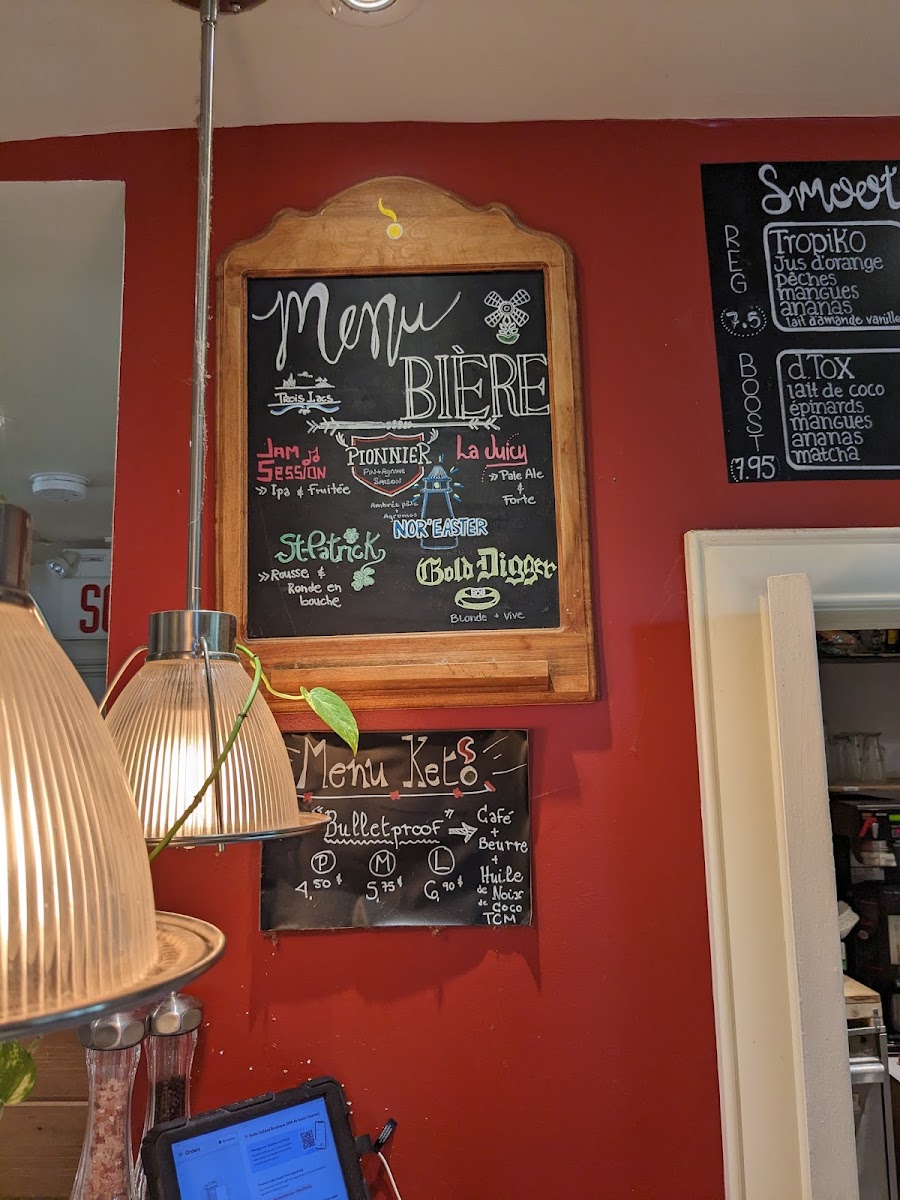 Menu
BIÈRE
TROIS LACS
JAM
SESSION
>> Ipa & Fruitée
PIONNIER
SAISON
La Juicy
>> Pale Ale
&
Forte
Ambrée pâle
+
Agrumes
NOR'EASTER
St-Patrick
>> Rousse &
Ronde en
bouche
Gold Digger
Blonde + Vive
Menu Keto
"Bulletproof" →
P M L
4,50$ 5,75$ 6,90$
Café
+
Beurre
+
Huile
de Noix
de Coco
TCM
Smoot
REG
7.5
TROPIKO
Jus d'orange
pêches
mangues
ananas
lait d'amande vanille
BOOST
7.95
d.Tox
lait de coco
épinards
mangues
ananas
matcha
S
Orders